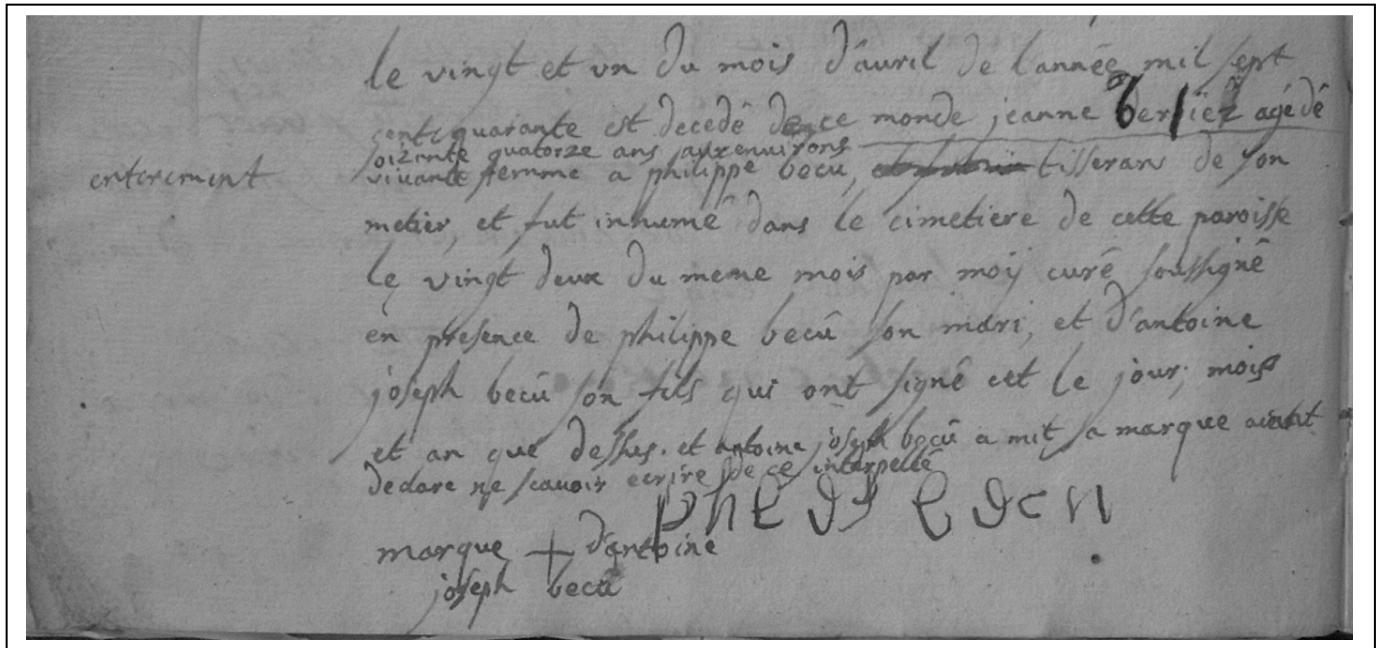 le vingt et un du mois d'auril de l'année mil sept
cent quarante est decedê de ce monde jeanne berliez agédê
soizente quatorze ans aux enuirons
enterement
viuante femme a philippe becû, tisserans de son
metier, et fut inhumê dans le cimetiere de cette paroisse
le vingt deux du meme mois par moÿ curé soussignê
en presence de philippe becû son mari, et d'antoine
joseph becû son fils qui ont signê cet le jour, mois
et an que dessus. et antoine joseph becû a mit sa marque aiant
declare ne scauoir ecrire de ce interpellê
marque + d'antoine
joseph becû